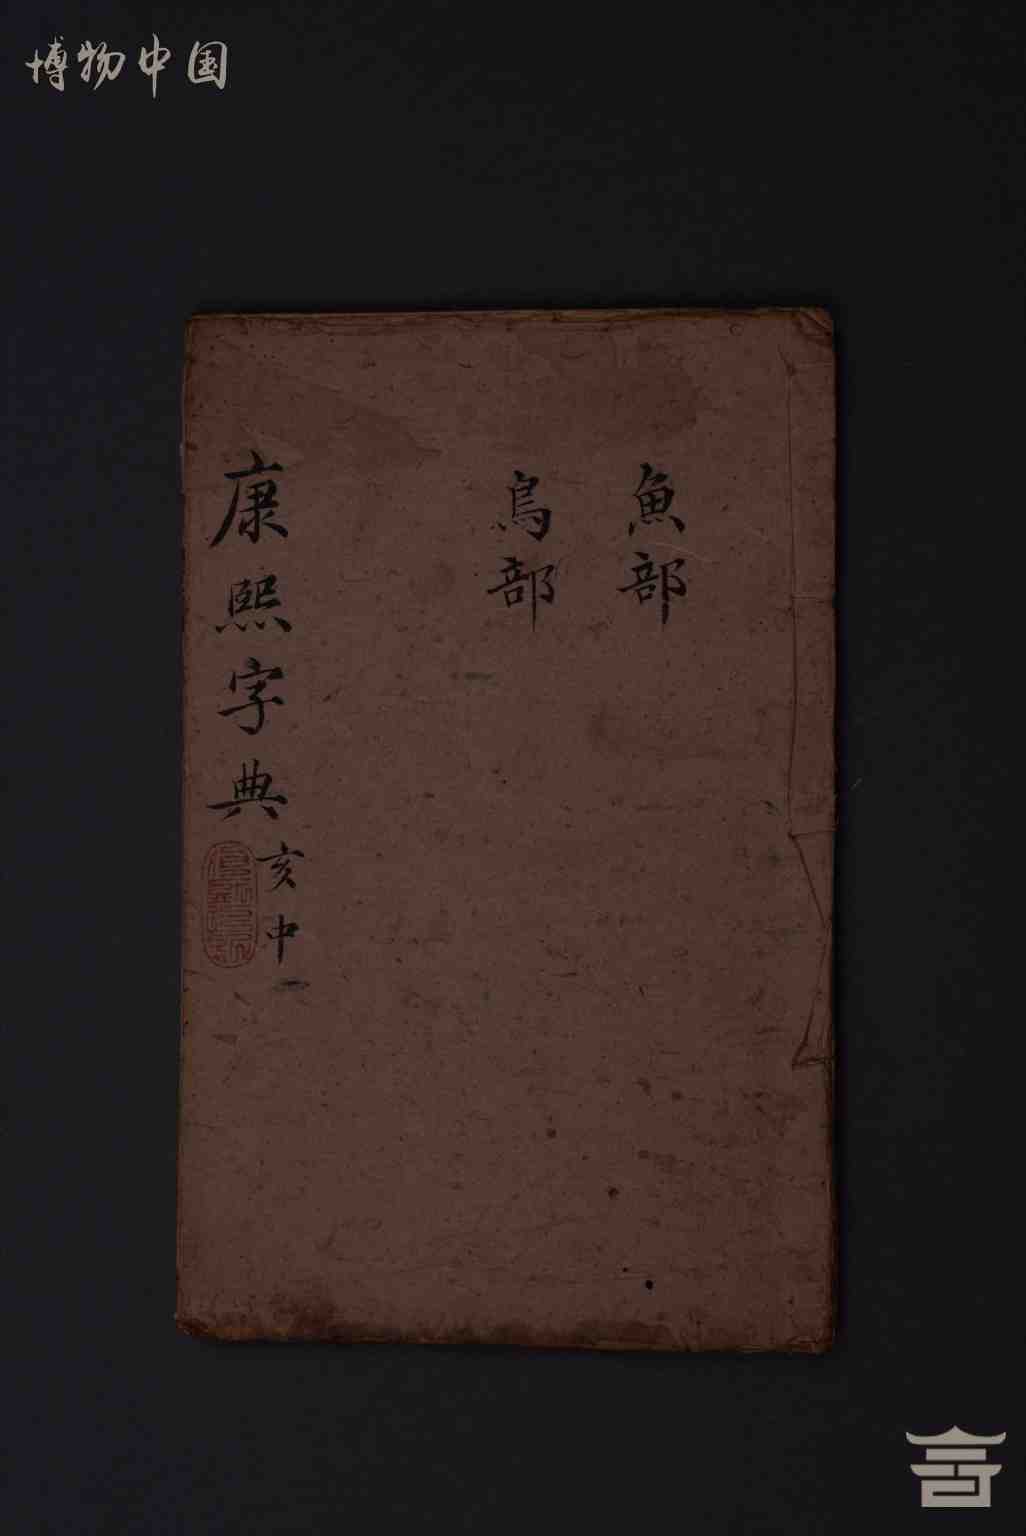 博物中国
魚部
鳥部
康熙字典
亥中